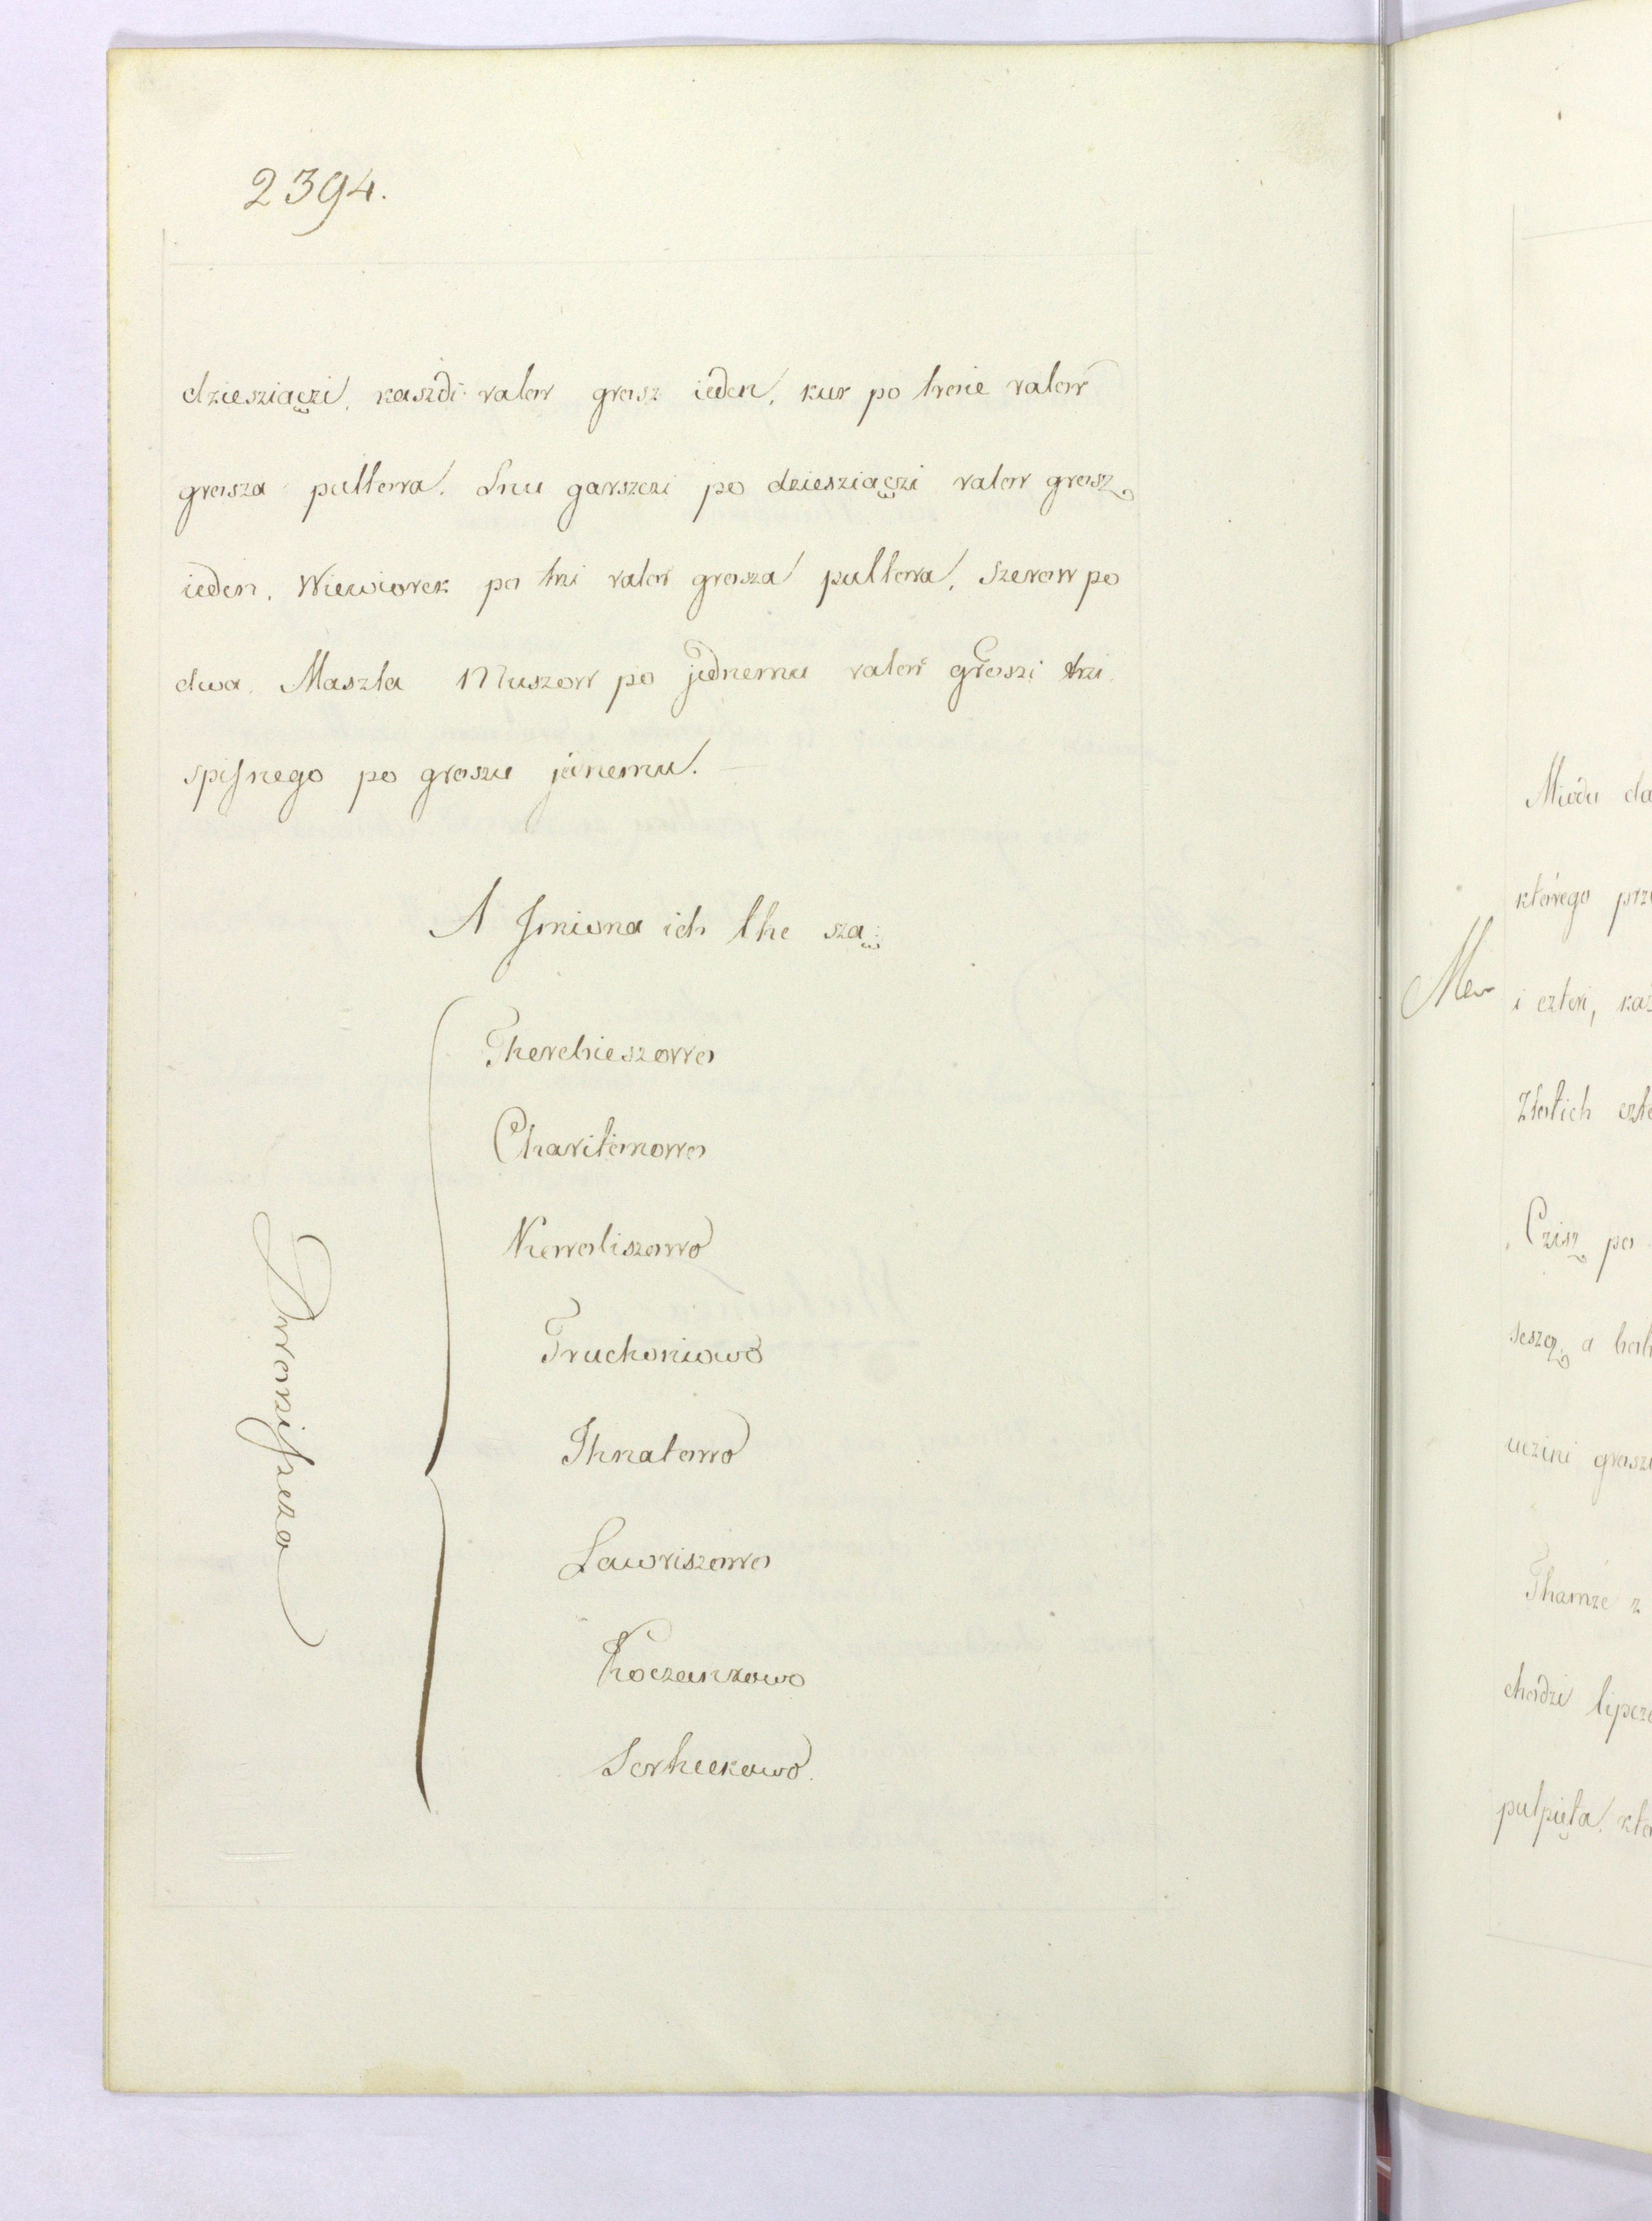 2394.
dziesziączi, kaszdi valor grosz ieden, kur po troie valor
grosza pultora. Lnu garszczi po dziesziączi valor grosz
ieden. Wiewiorek po tri valor grosza pultora, Szerow po
dwa. Maszla Muszow po jednemu valor groszi trzi
spisnego po groszu jenemu.
A Jmiona ich the szą:
Dworziszcza
Therehieszowo
Charitonowo
Kowaliszowo
Truchoniowo
Ihnatowo
Lawriszowo
Koczankowo
Serheekowo
Miodu
którego
i czteri,
Złotich
Czisz po
uczini
Thamze z
chodzi